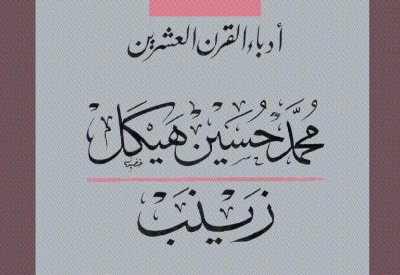 أدباء القرن العشرين
محمَّد حُسَين هَيكَل
زَينَب